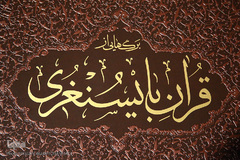 برگهایی از
قرآن بایسنغری